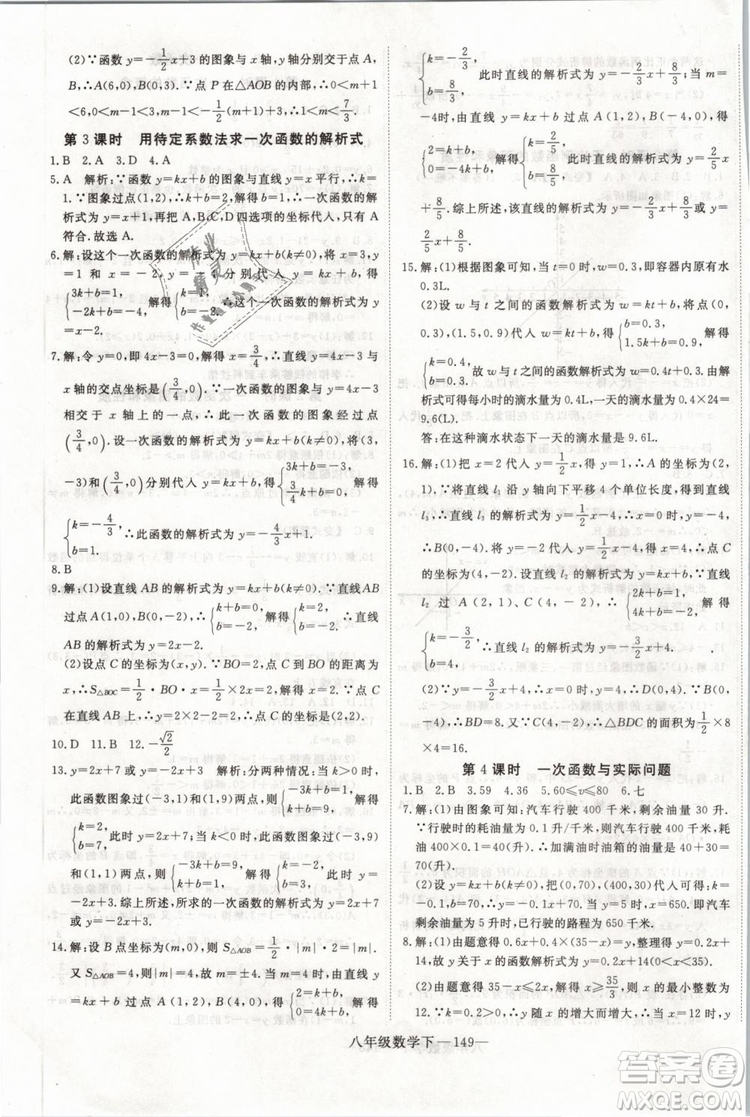 (2)∵函数 y=-1/2x+3 的图象与 x 轴、y 轴分别交于点 A,
B,∴A(6,0),B(0,3).∵点 P 在△AOB 的内部,∴0<m+1
<6,0<m-1<3,m-1<-1/2(m+1)+3,∴1<m<7/3.
第 3 课时 用待定系数法求一次函数的解析式
1.B 2.A 3.D 4.A
5.A 解析:∵函数 y=kx+b 的图象与直线 y=x 平行,∴k
=1.∵图象过点(1,2),∴k+b=2,∴b=1,∴此函数的解
析式为 y=x+1,再把 A,B,C,D 四选项的坐标代入,只有 A
符合.故选 A.
6.解:设这个一次函数的解析式为 y=kx+b(k≠0),将点(3,
1)和点(0,-2)分别代入一次函数解析式 y=kx+b,得
{3k+b=1, b=-2, 解得{k=1, b=-2, ∴这个一次函数的解析式为
y=x-2.
7.解:令 y=0,即 4x-3=0,解得 x=3/4,∴直线 y=4x-3 与
x 轴的交点坐标是(3/4,0).∵一次函数的图象与直线 y=4x-3
相交于 x 轴上的一点,∴一次函数的图象经过点
(3/4,0).设一次函数的解析式为 y=kx+b(k≠0),把点(1,
-3)和(3/4,0)分别代入 y=kx+b,得{k+b=-3, 3/4k+b=0, 解得
{k=-12, b=9, ∴此函数的解析式为 y=-12x+9.
8.B
9.解:(1)设直线 AB 的解析式为 y=kx+b(k≠0).∵直线 AB
过点 A(1,0),B(0,-2),∴{k+b=0, b=-2, 解得{k=2, b=-2, ∴直线
AB 的解析式为 y=2x-2.
(2)设点 C 的坐标为(x,y).∵BO=2,点 C 到 BO 的距离为
x,∴S△BOC=1/2·BO·x=1/2×2x=2,解得 x=2.∵点 C 在直线
AB 上,∴y=2×2-2=2,∴点 C 的坐标是(2,2).
10.D 11.B 12.-√2/2
13.y=-2x+3 或 y=2x+7 解析:分两种情况:当 k>0 时,
此函数图象过(-3,1)和(1,9)两点,则{-3k+b=1, k+b=9, 解得
{k=2, b=7, 此时 y=2x+7;当 k<0 时,此函数图象过(-3,9)
和(1,1)两点,则{-3k+b=9, k+b=1, 解得{k=-2, b=3, 此时 y=
-2x+3.综上所述,此函数的解析式是 y=-2x+3 或 y=
2x+7.
14.解:设 B 点坐标为(m,0),则 S△AOB=1/2·|m|·2=|m|=
4,∴m=±4,∴B 点的坐标为(4,0)或(-4,0).当 m=4
时,由题意得{k+b=2, 4k+b=0, 解得
{k=-2/3, b=8/3, 此时直线的解析式为 y=-2/3x+8/3;当 m=
-4时,由题意得{k+b=2, -4k+b=0, 解得{k=2/5, b=8/5, 此时直线的解析式为 y=2/5x
+8/5.综上所述,这条直线的解析式为 y=-2/3x+8/3或 y=
2/5x+8/5.
15.解:(1)根据图象可知,当 t=0 时,w=0.3,即容器内原有水
0.3L.
(2)设 w 与 t 之间的函数解析式为 w=kt+b(k≠0),将点
(0,0.3),(1.5,0.9)代入 w=kt+b,得{b=0.3, 1.5k+b=0.9, 解得
{k=0.4, b=0.3, 故 w 与 t 之间的函数解析式为 w=0.4t+0.3.由解
析式可得每小时的滴水量为 0.4L,一天的滴水量为 0.4×24=
9.6(L).
答:在这种滴水状态下一天的滴水量为 9.6L.
15.解:(1)把 x=2 代入 y=1/2x,得 y=1,∴点 A 的坐标为(2,
1).∵将直线 l₁ 沿 y 轴向下平移 4 个单位长度,得到直线
l₃,∴直线 l₃ 的解析式为 y=1/2x-4.当 x=0 时,y=-4,
∴B(0,-4).将 y=-2 代入 y=1/2x-4,得 x=4,∴点 C
的坐标为(4,-2).设直线 l₂ 的解析式为 y=kx+b.∵直线
l₂ 过 A(2,1),C(4,-2),∴{2k+b=1, 4k+b=-2, 解得
{k=-3/2, b=4, ∴直线 l₂ 的解析式为 y=-3/2x+4.
(2)∵y=-3/2x+4,∴当 x=0 时,y=4,∴D(0,4).∵B(0,
-4),∴BD=8.又∵C(4,-2),∴△BDC 的面积为1/2×8
×4=16.
第 4 课时 一次函数与实际问题
1.B 2.B 3.59 4.36 5.60≤v≤80 6.七
7.解:(1)由图象可知:汽车行驶 400 千米,剩余油量 30 升.
∵行驶时的耗油量为 0.1 升/千米,则汽车行驶 400 千米,耗
油 400×0.1=40(升),∴加满油时油箱的油量是 40+30=
70(升).
(2)设 y=kx+b(k≠0),把(0,70),(400,30)代入可得 k=
-0.1,b=70,∴y=-0.1x+70,当 y=5 时,x=650,即汽车
剩余油量 5 升时,已行驶的路程为 650 千米.
8.解:(1)由题意得 0.6x+0.4×(35-x)=y,整理得 y=0.2x
+14(0<x<35).
(2)由题意得 35-x≤2x,解得 x≥35/3,则 x 的最小整数为
12.∵k=0.2>0,∴y 随 x 的增大而增大,∴当 x=12 时,
八年级数学下—149—